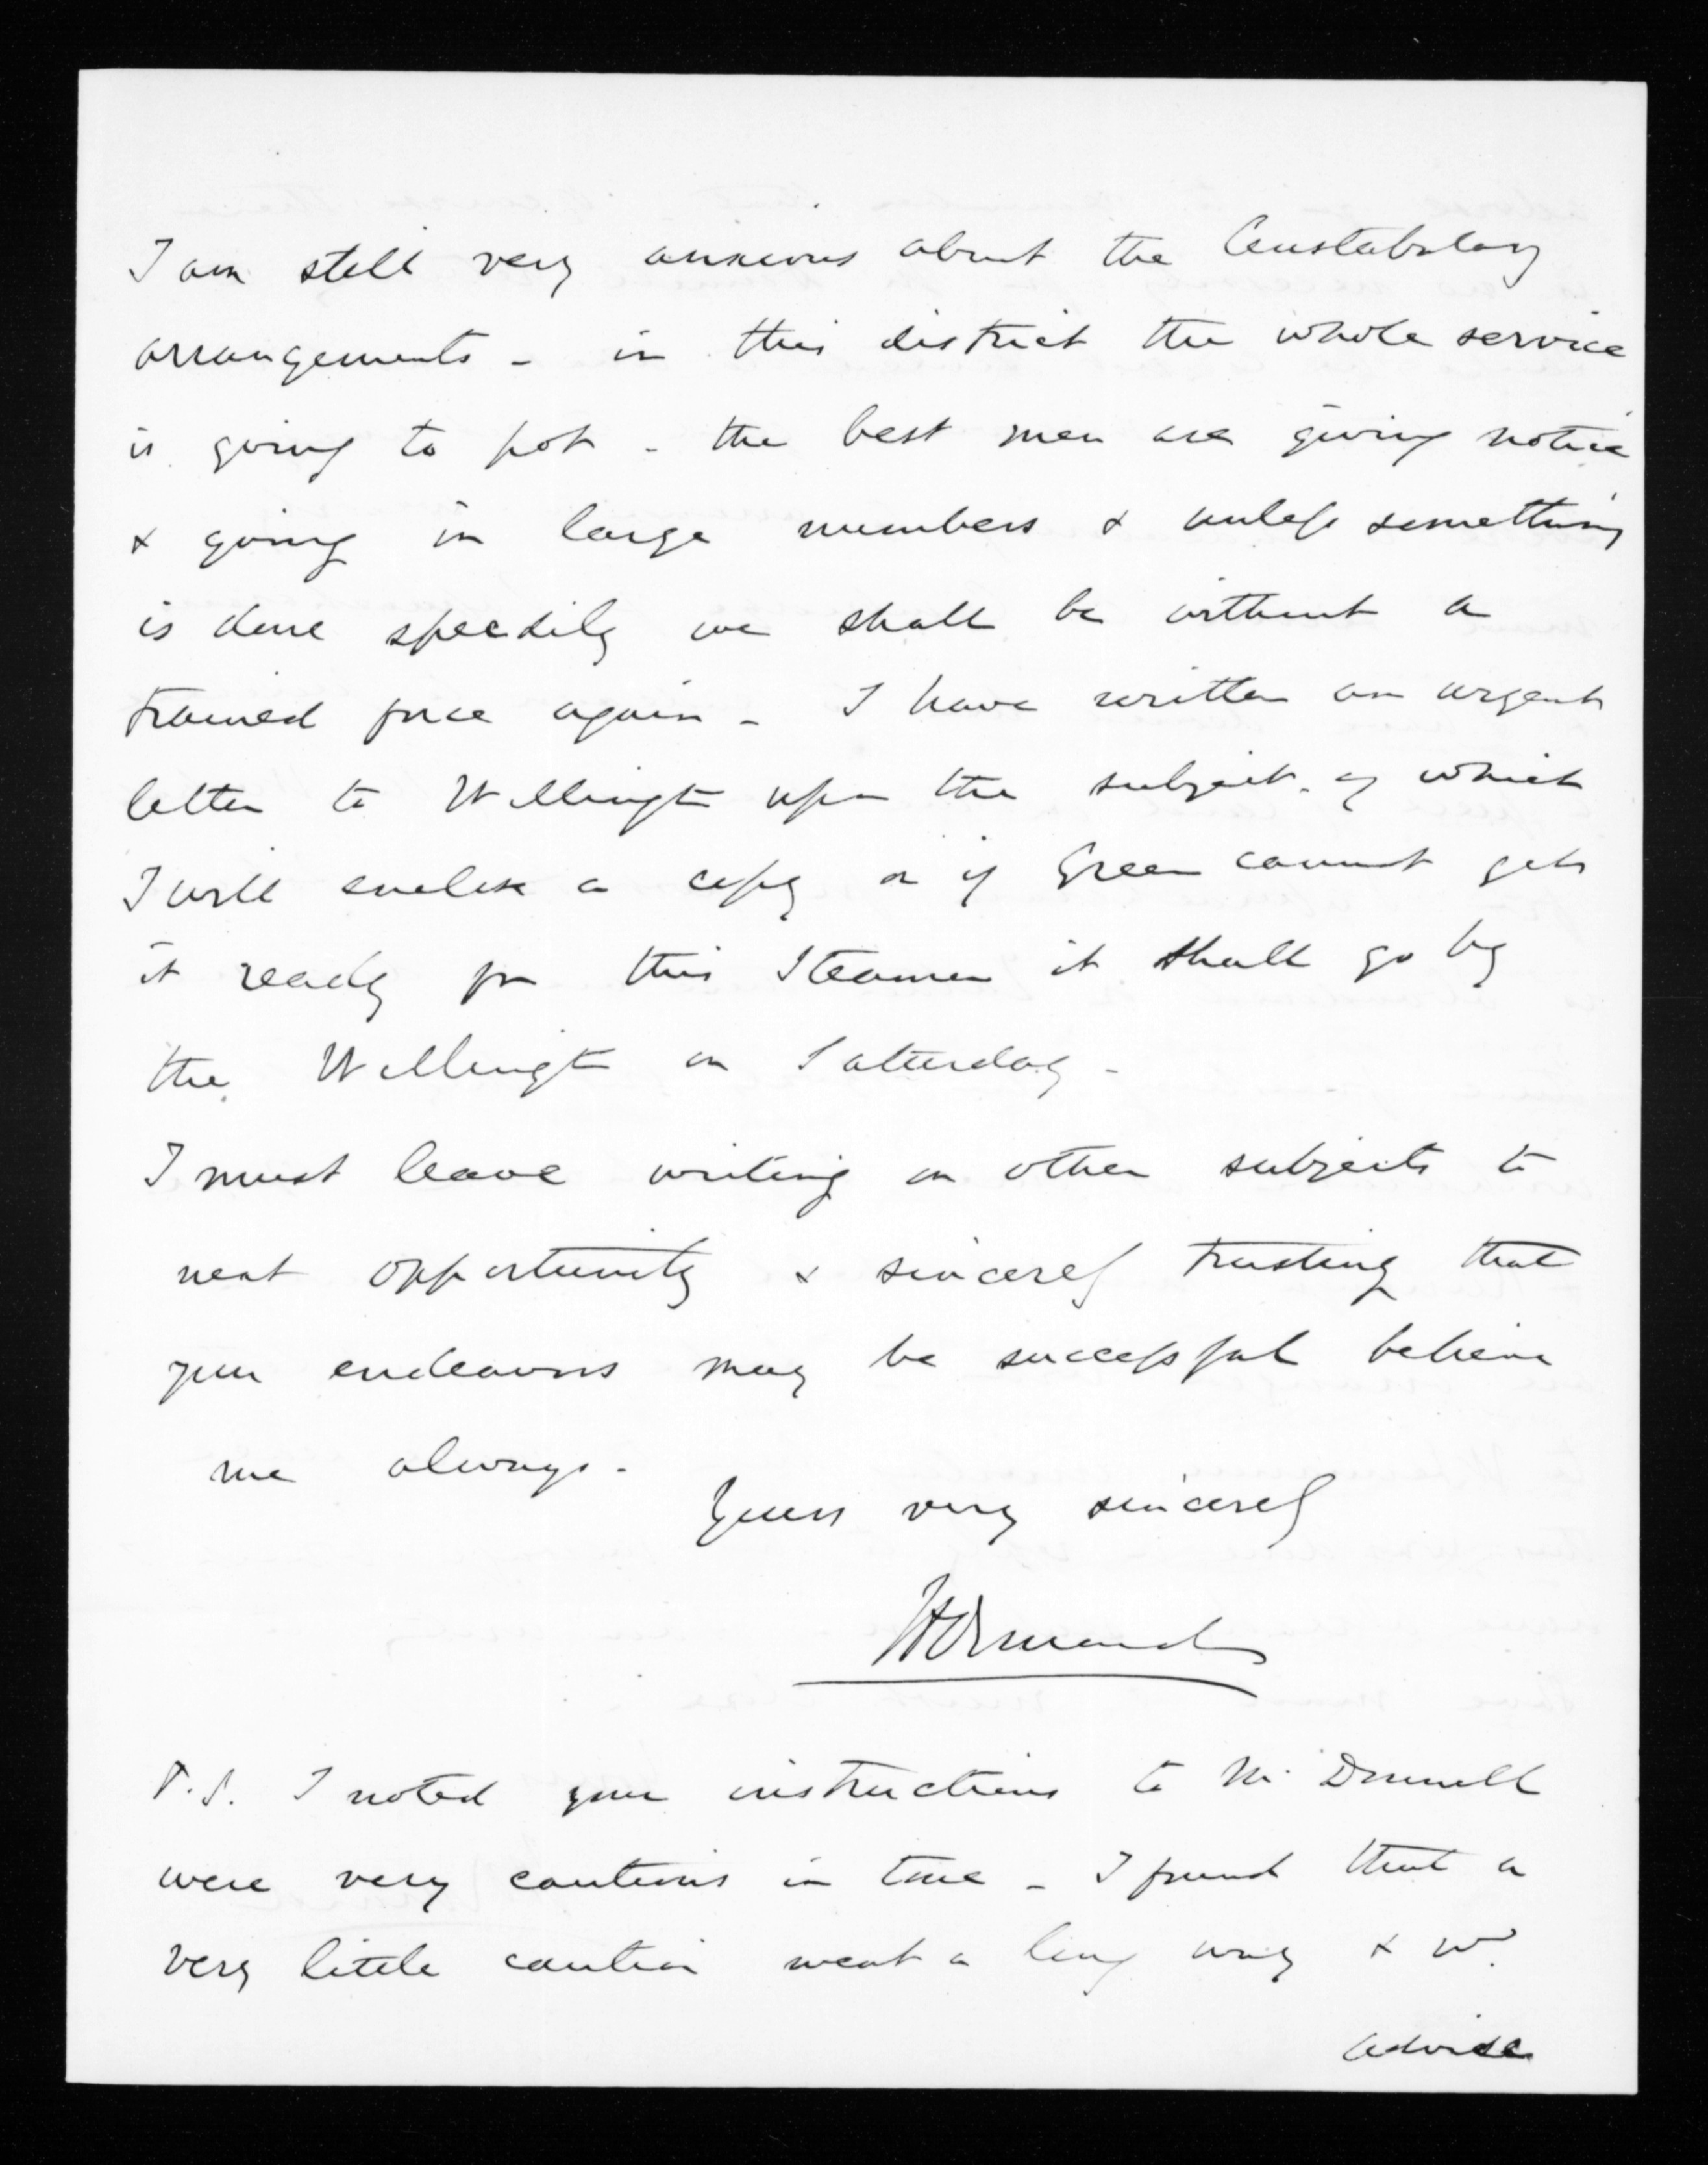 I am still very anxious about the Constabulary
arrangements - in this district the whole service
is going to pot - the best men are giving notice
& going in large numbers & unless something
is done speedily we shall be without a
trained force again - I have written an urgent
letter to Wellington upon the subject - of which
I will enclose a copy or if Green cannot get
it ready for this Steamer it shall go by
the Wellington on Saturday -
I must leave writing on other subjects to
next opportunity & sincerely trusting that
your endeavours may be successful believe
me always -
Yours very sincerely
JD Ormond
P.S. I noted your instructions to McDonnell
were very cautious in tone - I found that a
very little caution went a long way & wd.
advise